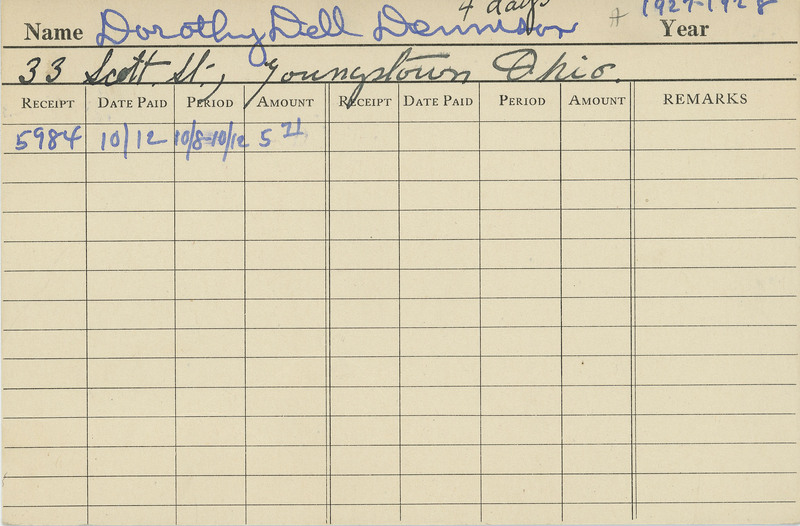 4 days # 1927-1928
Name Dorothy Dell Dennison Year
33 Scott St., Youngstown Ohio.
RECEIPT DATE PAID PERIOD AMOUNT RECEIPT DATE PAID PERIOD AMOUNT REMARKS
5984 10/12 10/8-10/12 5 71